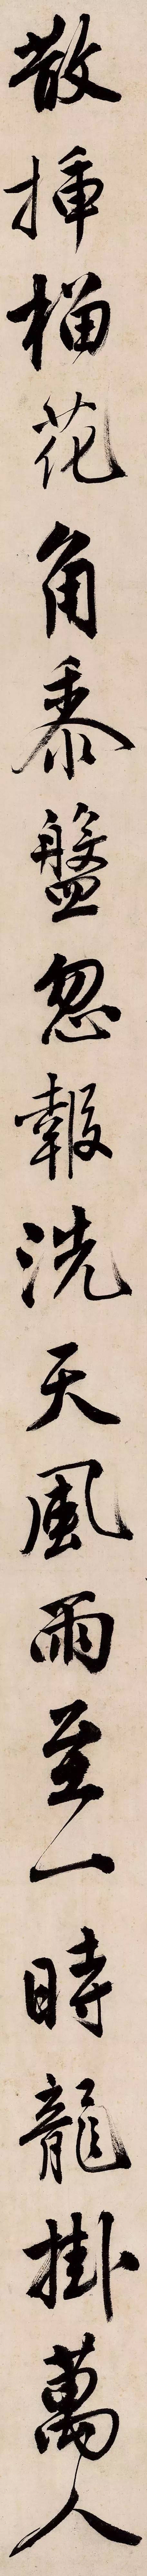 散插榴花角黍盤忽報洗天風雨至一時龍掛萬人